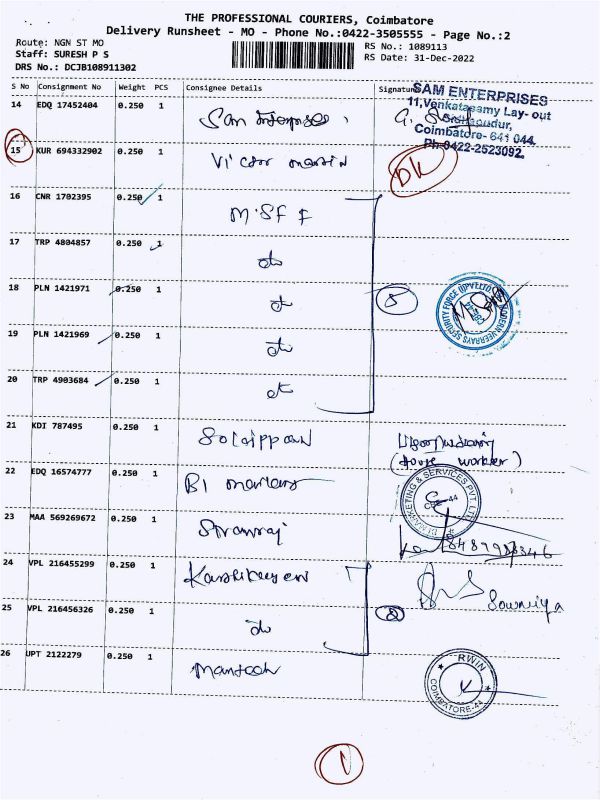 THE PROFESSIONAL COURIERS, Coimbatore
Delivery Runsheet - MO - Phone No.:0422-3505555 - Page No.:2
Route: NGN ST MO
Staff: SURESH P S
DRS No.: DCJB108911302
RS No.: 1089113
RS Date: 31-Dec-2022
S No Consignment No Weight PCS Consignee Details Signature
SAM ENTERPRISES
11,Venkatasamy Lay-out
Coimbatore- 641 044.
Ph:0422-2523092.
14 EDQ 17452404 0.250 1 Sam Enterprises
15 KUR 694332902 0.250 1 Victor martin DK
16 CNR 1702395 0.250 1 M.SF F
17 TRP 4804857 0.250 1 do
18 PLN 1421971 0.250 1 do 5
19 PLN 1421969 0.250 1 do
20 TRP 4903684 0.250 1 do
21 KDI 787495 0.250 1
(House worker)
22 EDQ 16574777 0.250 1 BI
BI MARKETING & SERVICES PVT. LTD.
CBE-44
23 MAA 569269672 0.250 1
24 VPL 216455299 0.250 1 Karthikeyen
Sowmiya
25 VPL 216456326 0.250 1 do 2
26 UPT 2122279 0.250 1
COIMBATORE-44
1